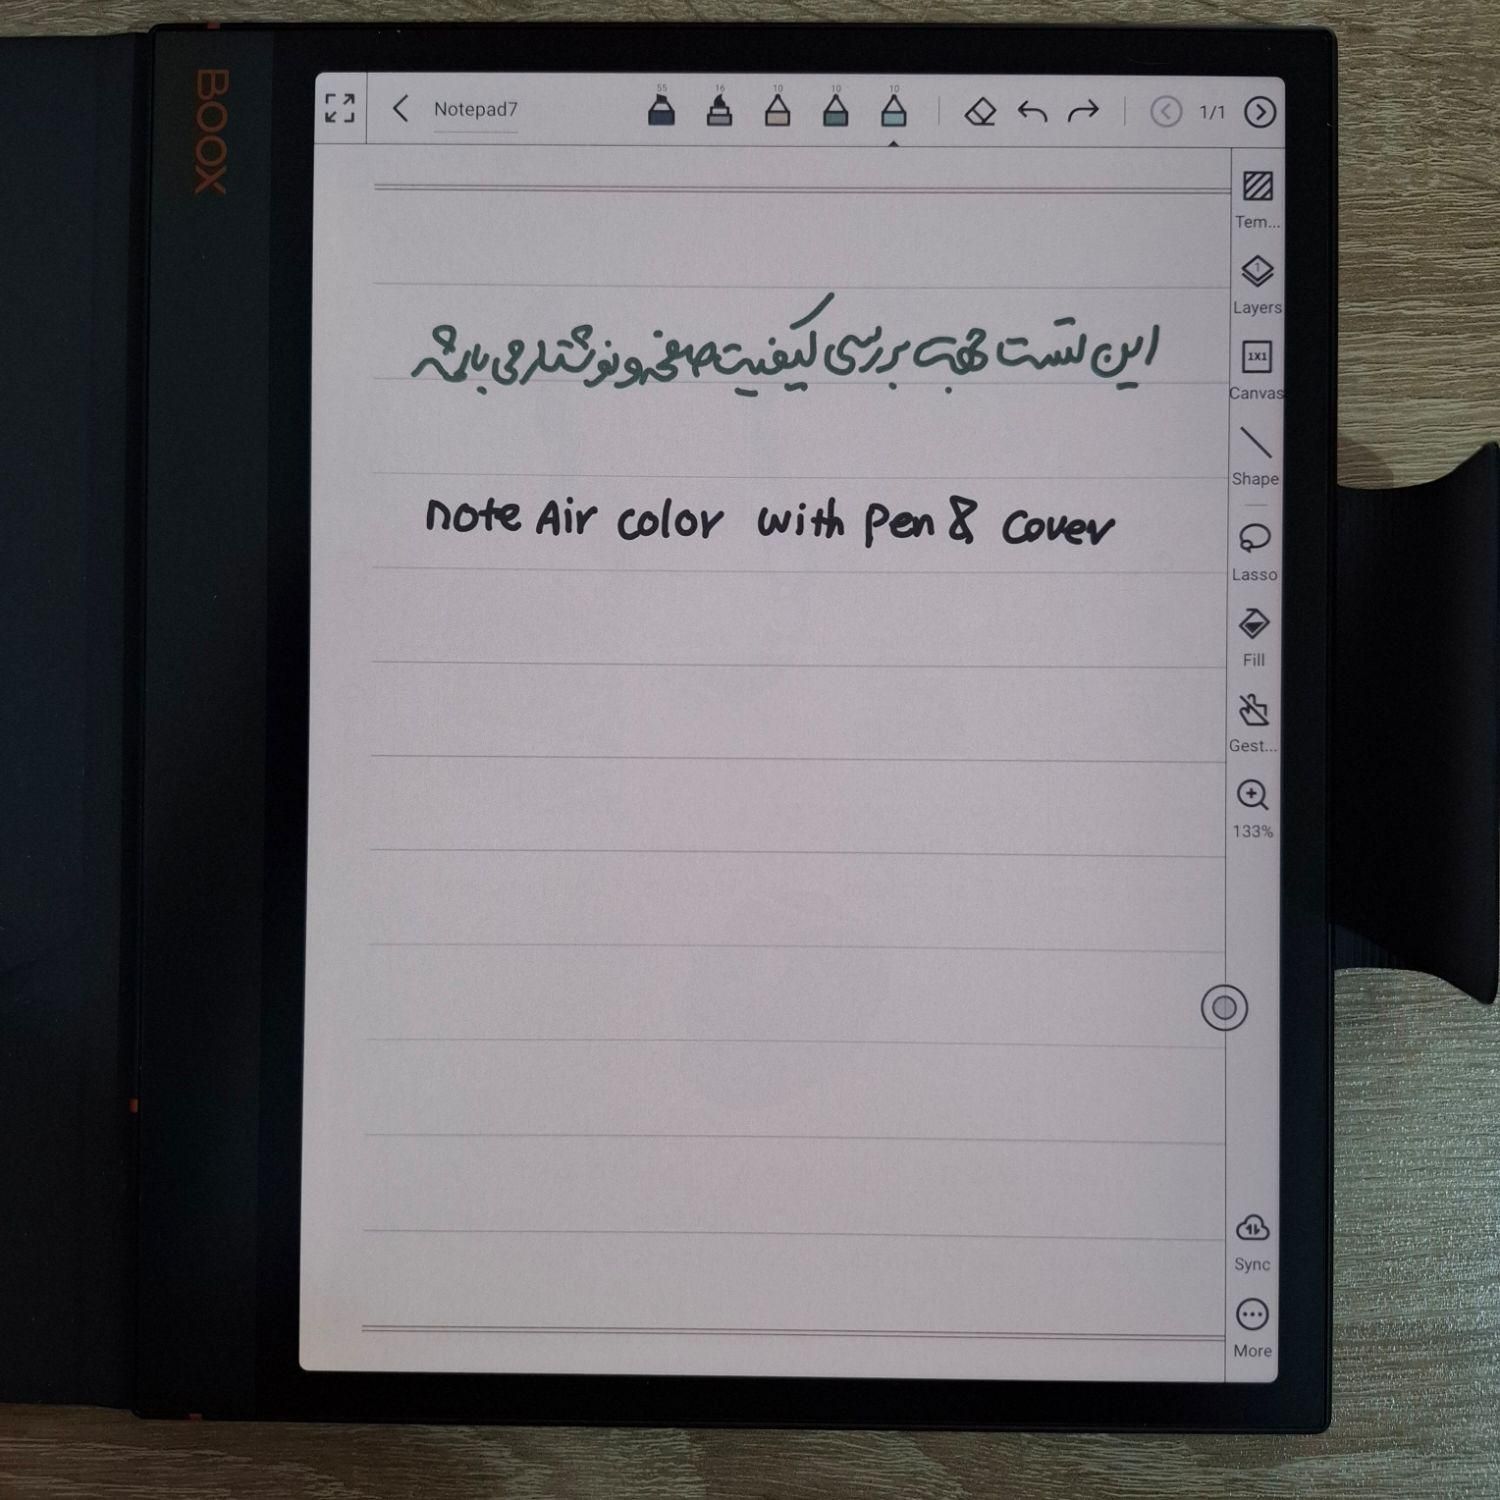 BOOX
Notepad7
55 16 10 10 10
1/1
Tem...
1
Layers
این تست جهت بررسی کیفیت صفحه و نوشتار می باشد
1X1
Canvas
Shape
note Air color with pen & cover
Lasso
Fill
Gest...
133%
Sync
More